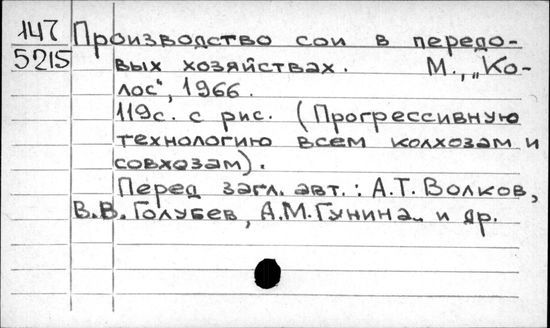 147 Производство сои в передо-
5215 вых хозяйствах. М., „Ко-
лос", 1966.
119с. с рис. (Прогрессивную
технологию всем колхозам и
совхозам).
Перед загл. авт.: А.Т. Волков,
В.В. Голубев, А.М. Гунина и др.